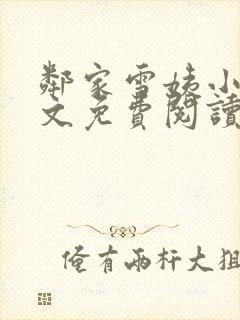 鄰家雪姨小
文免費閱讀
俺有兩杆大狙